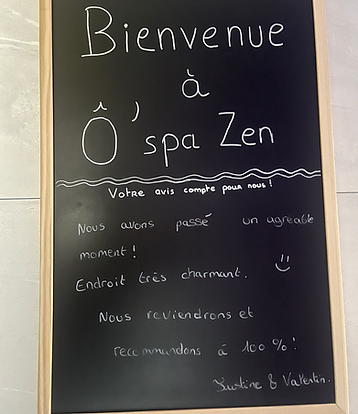 Bienvenue
à
Ô'spa Zen
Votre avis compte pour nous !
Nous avons passé un agréable
moment !
Endroit très charmant.
Nous reviendrons et
recommandons à 100 % !
Justine & Valentin.